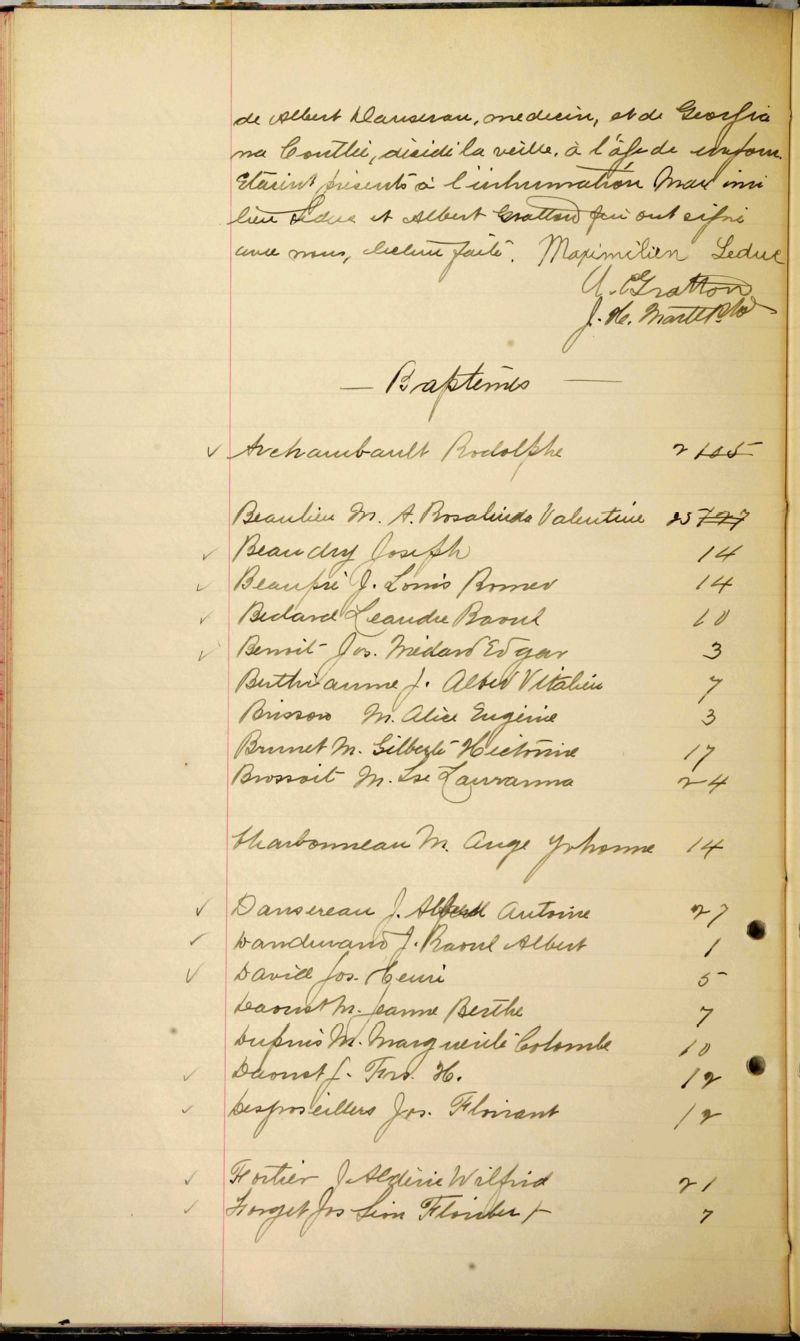 de Albert Dansereau, medecin, et de Georgia
na Couthé, décédé la veille, à l'âge de un jour.
Etaient présents à l'inhumation Maximi
lien Leduc et Albert Gratton qui ont signé
avec nous, lecture faite. Maximilien Leduc
A. Gratton
J. H.
— Baptêmes —
✓ Archambault Rodolphe 2 105
Beaulieu M. A. Rosalinda Valentine 25 727
✓ Beaudry Joseph 14
✓ Beaupré J. Louis Romeo 14
✓ Bedard Leandre Raoul 10
✓ Benoit Jos. Médard Edgar 3
Berthiaume J. Albert Vitalien 7
Brisson M. Alice Eugénie 3
Brunet M. Gilberte Hectorine 17
Brossoit M. Lse Lauranna 24
Charbonneau M. Ange Yvhonne 14
✓ Dansereau J. Albert Antoine 27
✓ Dandurand J. Raoul Albert 1
✓ David Jos. Henri 5
Daoust M. Jeanne Berthe 7
Dupuis M. Marguerite Colombe 10
✓ Daoust J. Frs. H. 12
✓ Desgroseillers Jos. Floirant 12
✓ Fortier J. Aldéric Wilfrid 21
✓ Forget Jos Léon Floribert 7